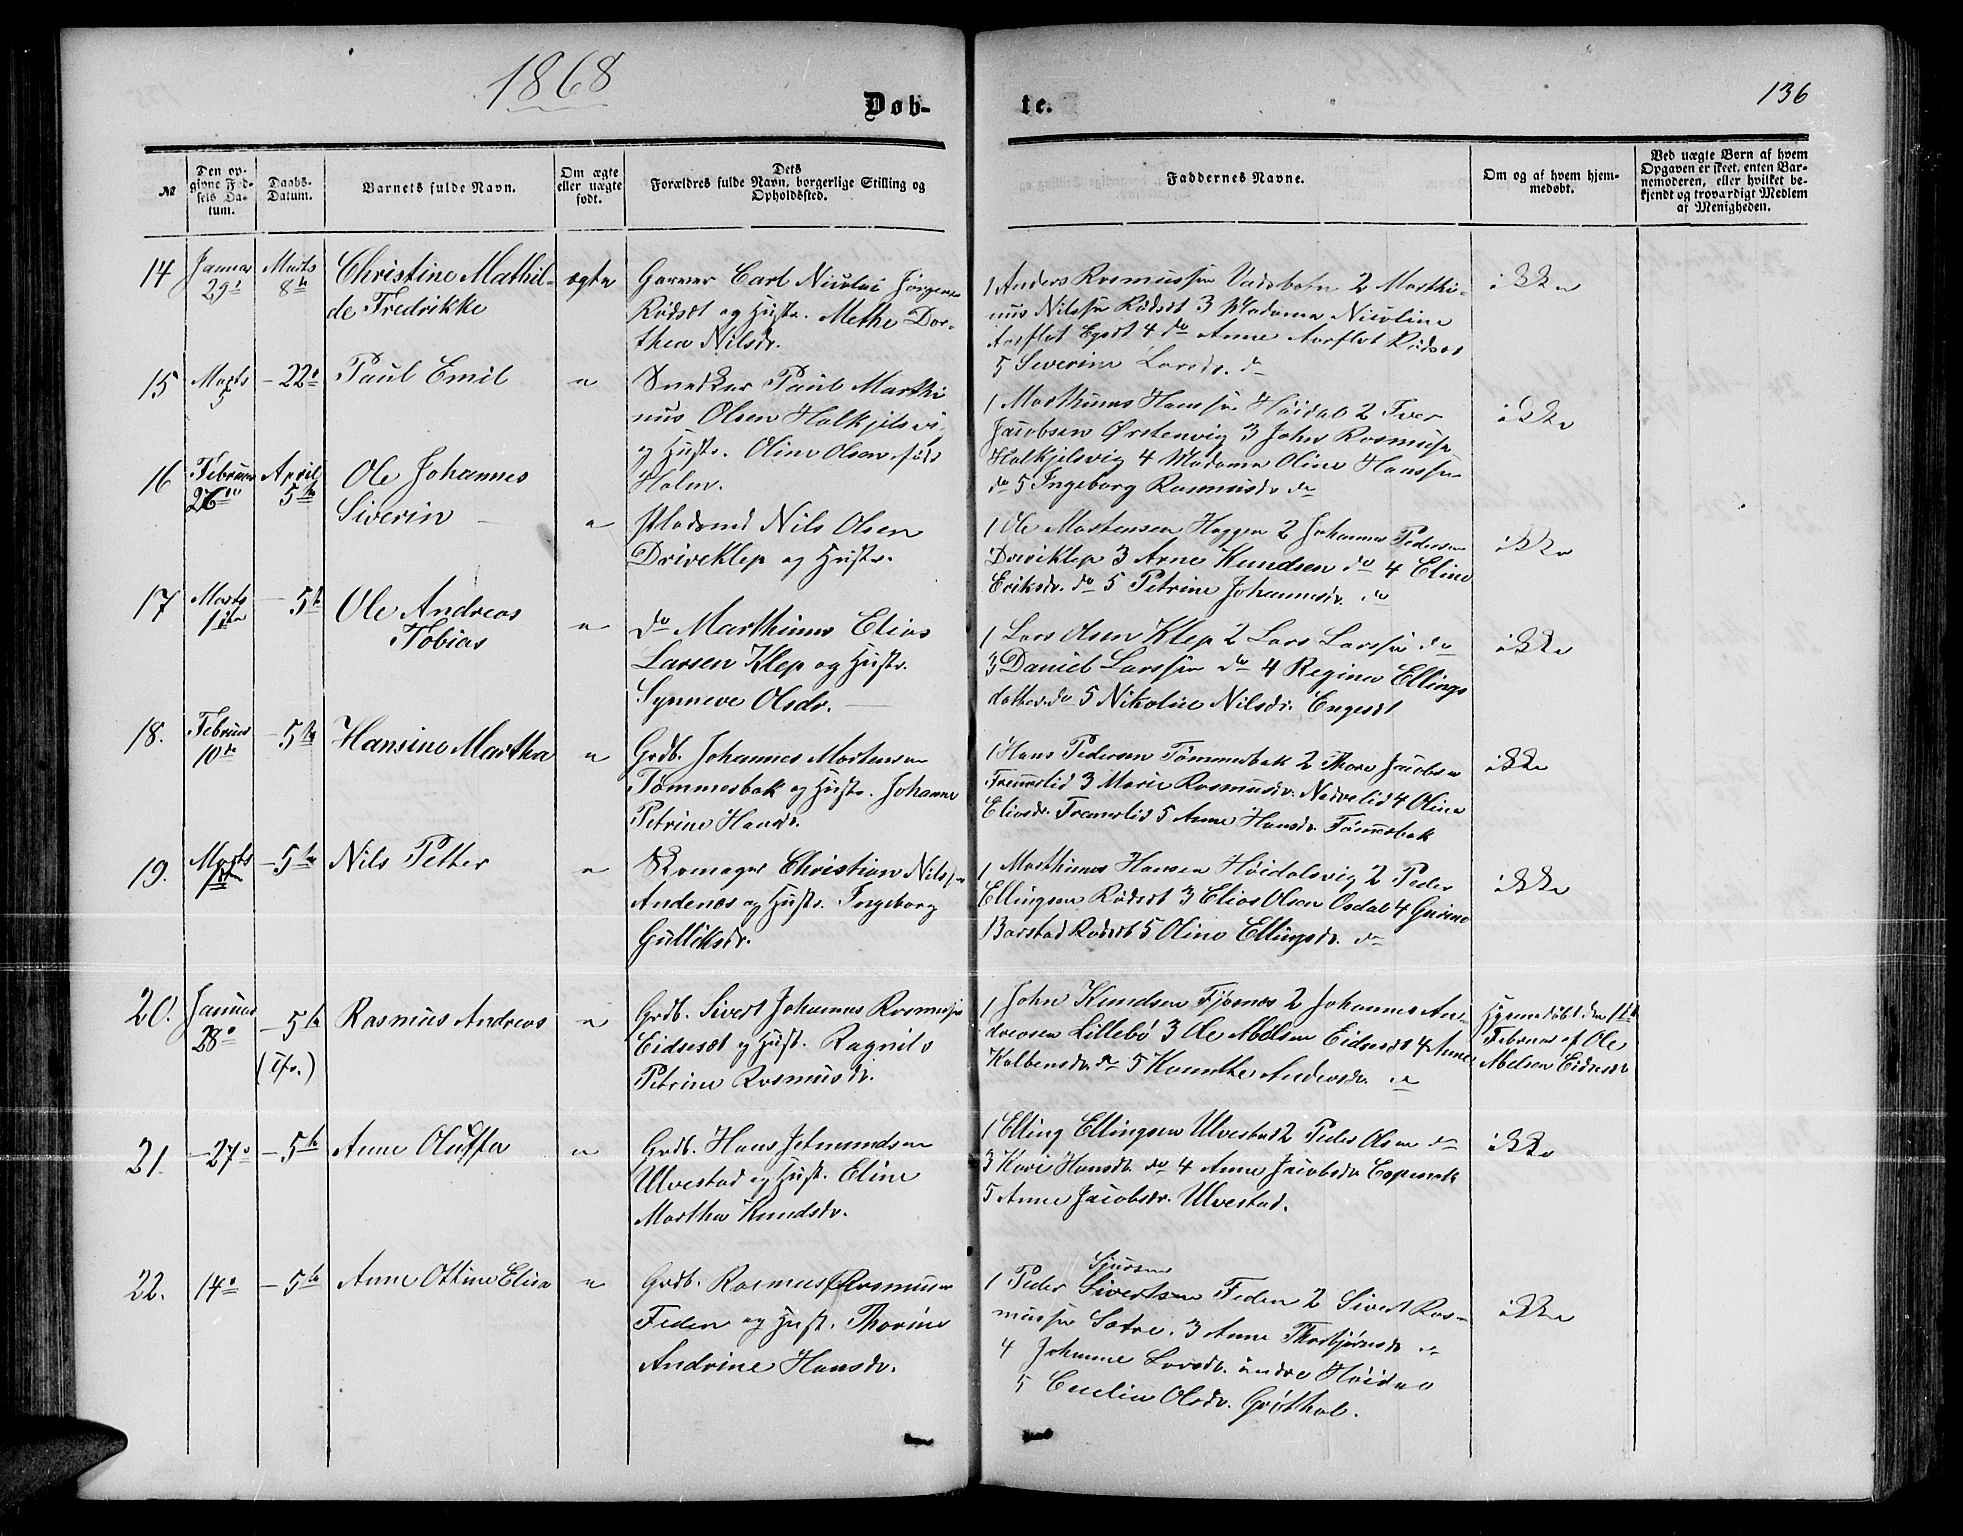 1868
Døb-
te.
136
No
Den op-
givne Fød-
sels Da-
tum.
Daabs-
Datum.
Barnets fulde Navn.
Om ægte
eller uægte
født.
Dets
Forældres fulde Navn, borgerlige Stilling og
Opholdssted.
Faddernes Navne.
Om og af hvem hjem-
medøbt.
Ved uægte Børn af hvem
Opgaven er skeet, enten Bar-
nemoderen, eller hvilket be-
kjendt og troværdigt Medlem
af Menigheden.
14
Januar
29
Marts
8de
Christine Mathil-
de Fredrikke
ægte
Garver Carl Nicolai Jørgensen
Rødsæt og Hustr. Methe Dor-
thea Nilsdr.
1 Anders Rasmussen Vadsbotn 2 Marthi-
nus Nilssen Rødsæt 3 Madame Nicoline
Aarflot Egset 4 do Anne Aarflot Rødset
5 Severine Larsdr. do
ikke
15
Marts
5
- 22de
Paul Emil
"
Snedker Paul Marthi
nus Olsen Holkjelsvig
og Hustr. Oline Olsen født
Holm.
1 Marthinus Hanssen Høidal 2 Iver
Jacobsen Ørstenvig 3 John Rasmussen
Holkjelsvig 4 Madame Oline Hanssen
do 5 Ingeborg Rasmusdr. do
ikke
16
Februar
26de
April
5te
Ole Johannes
Siverin -
"
Pladsmd Nils Olsen
Driveklep og Hustr.
1 Ole Mortensen Haggen 2 Johannes Pedersen
Driveklep 3 Arne Knudsen do 4 Eline
Eriksdr. do 5 Petrine Johannesdr. do
ikke
17
Marts
1ste
- 5te
Ole Andreas
Tobias
"
do Marthinus Elias
Larsen Klep og Hustr.
Synneve Olsdr. -
1 Lars Olsen Klep 2 Lars Larssen do
3 Daniel Larssen do 4 Regine Ellings
datter do 5 Nikoline Nilsdr. Engeset
ikke
18.
Februar
10de
- 5te
Hansine Martha
"
Grdb. Johannes Mortensen
Tømmerbak og Hustr. Johanne
Petrine Hansdr.
1 Hans Pedersen Tømmerbak 2 Thore Jacobsen
Fremstlid 3 Marie Rasmusdr. Nedrelid 4 Oline
Eliasdr. Fremstlid 5 Anne Hansdr. Tømmerbak
ikke
19.
Marts
1ste
- 5te
Nils Petter
"
Skomager Christian Nilssen
Andenæs og Hustr. Ingeborg
Gulliksdr.
1 Marthinus Hansen Høidalsvig 2 Peder
Ellingsen Rødset 3 Elias Olsen Osdal 4 Gurine
Barstad Rødset 5 Oline Ellingsdr. do
ikke
20.
Januar
28de
- 5te
Rasmus Andreas
"
Grdb. Sivert Johannes Rasmussen
Eidseset og Hustr. Ragnild
Petrine Rasmusdr.
1 John Knudsen Fjørnes 2 Johannes An-
dreasen Lillebø 3 Ole Abelsen Eidseset 4 Anne
Kolbensdr. do 5 Kanutte Andersdr. do
Hjemmedøbt den 1ste
Februar af Ole
Abelsen Eidseset
21.
- 27de
- 5te
Anne Oluffa
"
Grdb. Hans Jetmundsen
Ulvestad og Hustr. Eline
Martha Knudsdr.
1 Elling Ellingsen Ulvestad 2 Peder Olsen do
3 Kari Hansdr. do 4 Anne Jacobsdr.
5 Anne Jacobsdr. Ulvestad.
ikke
22.
14de
- 5te
Anne Ottine Elisa
"
Grdb. Rasmus Rasmussen
Feden og Hustr. Thorine
Andrine Hansdr.
Sjursen
1 Peder Sivertsen Feden 2 Sivert Ras-
mussen Sætre. 3 Anne Thorbjørnsdr. do
4 Johanne Larsdr. Indre Høidal
5 Cecilie Olsdr. Grøthol.
ikke